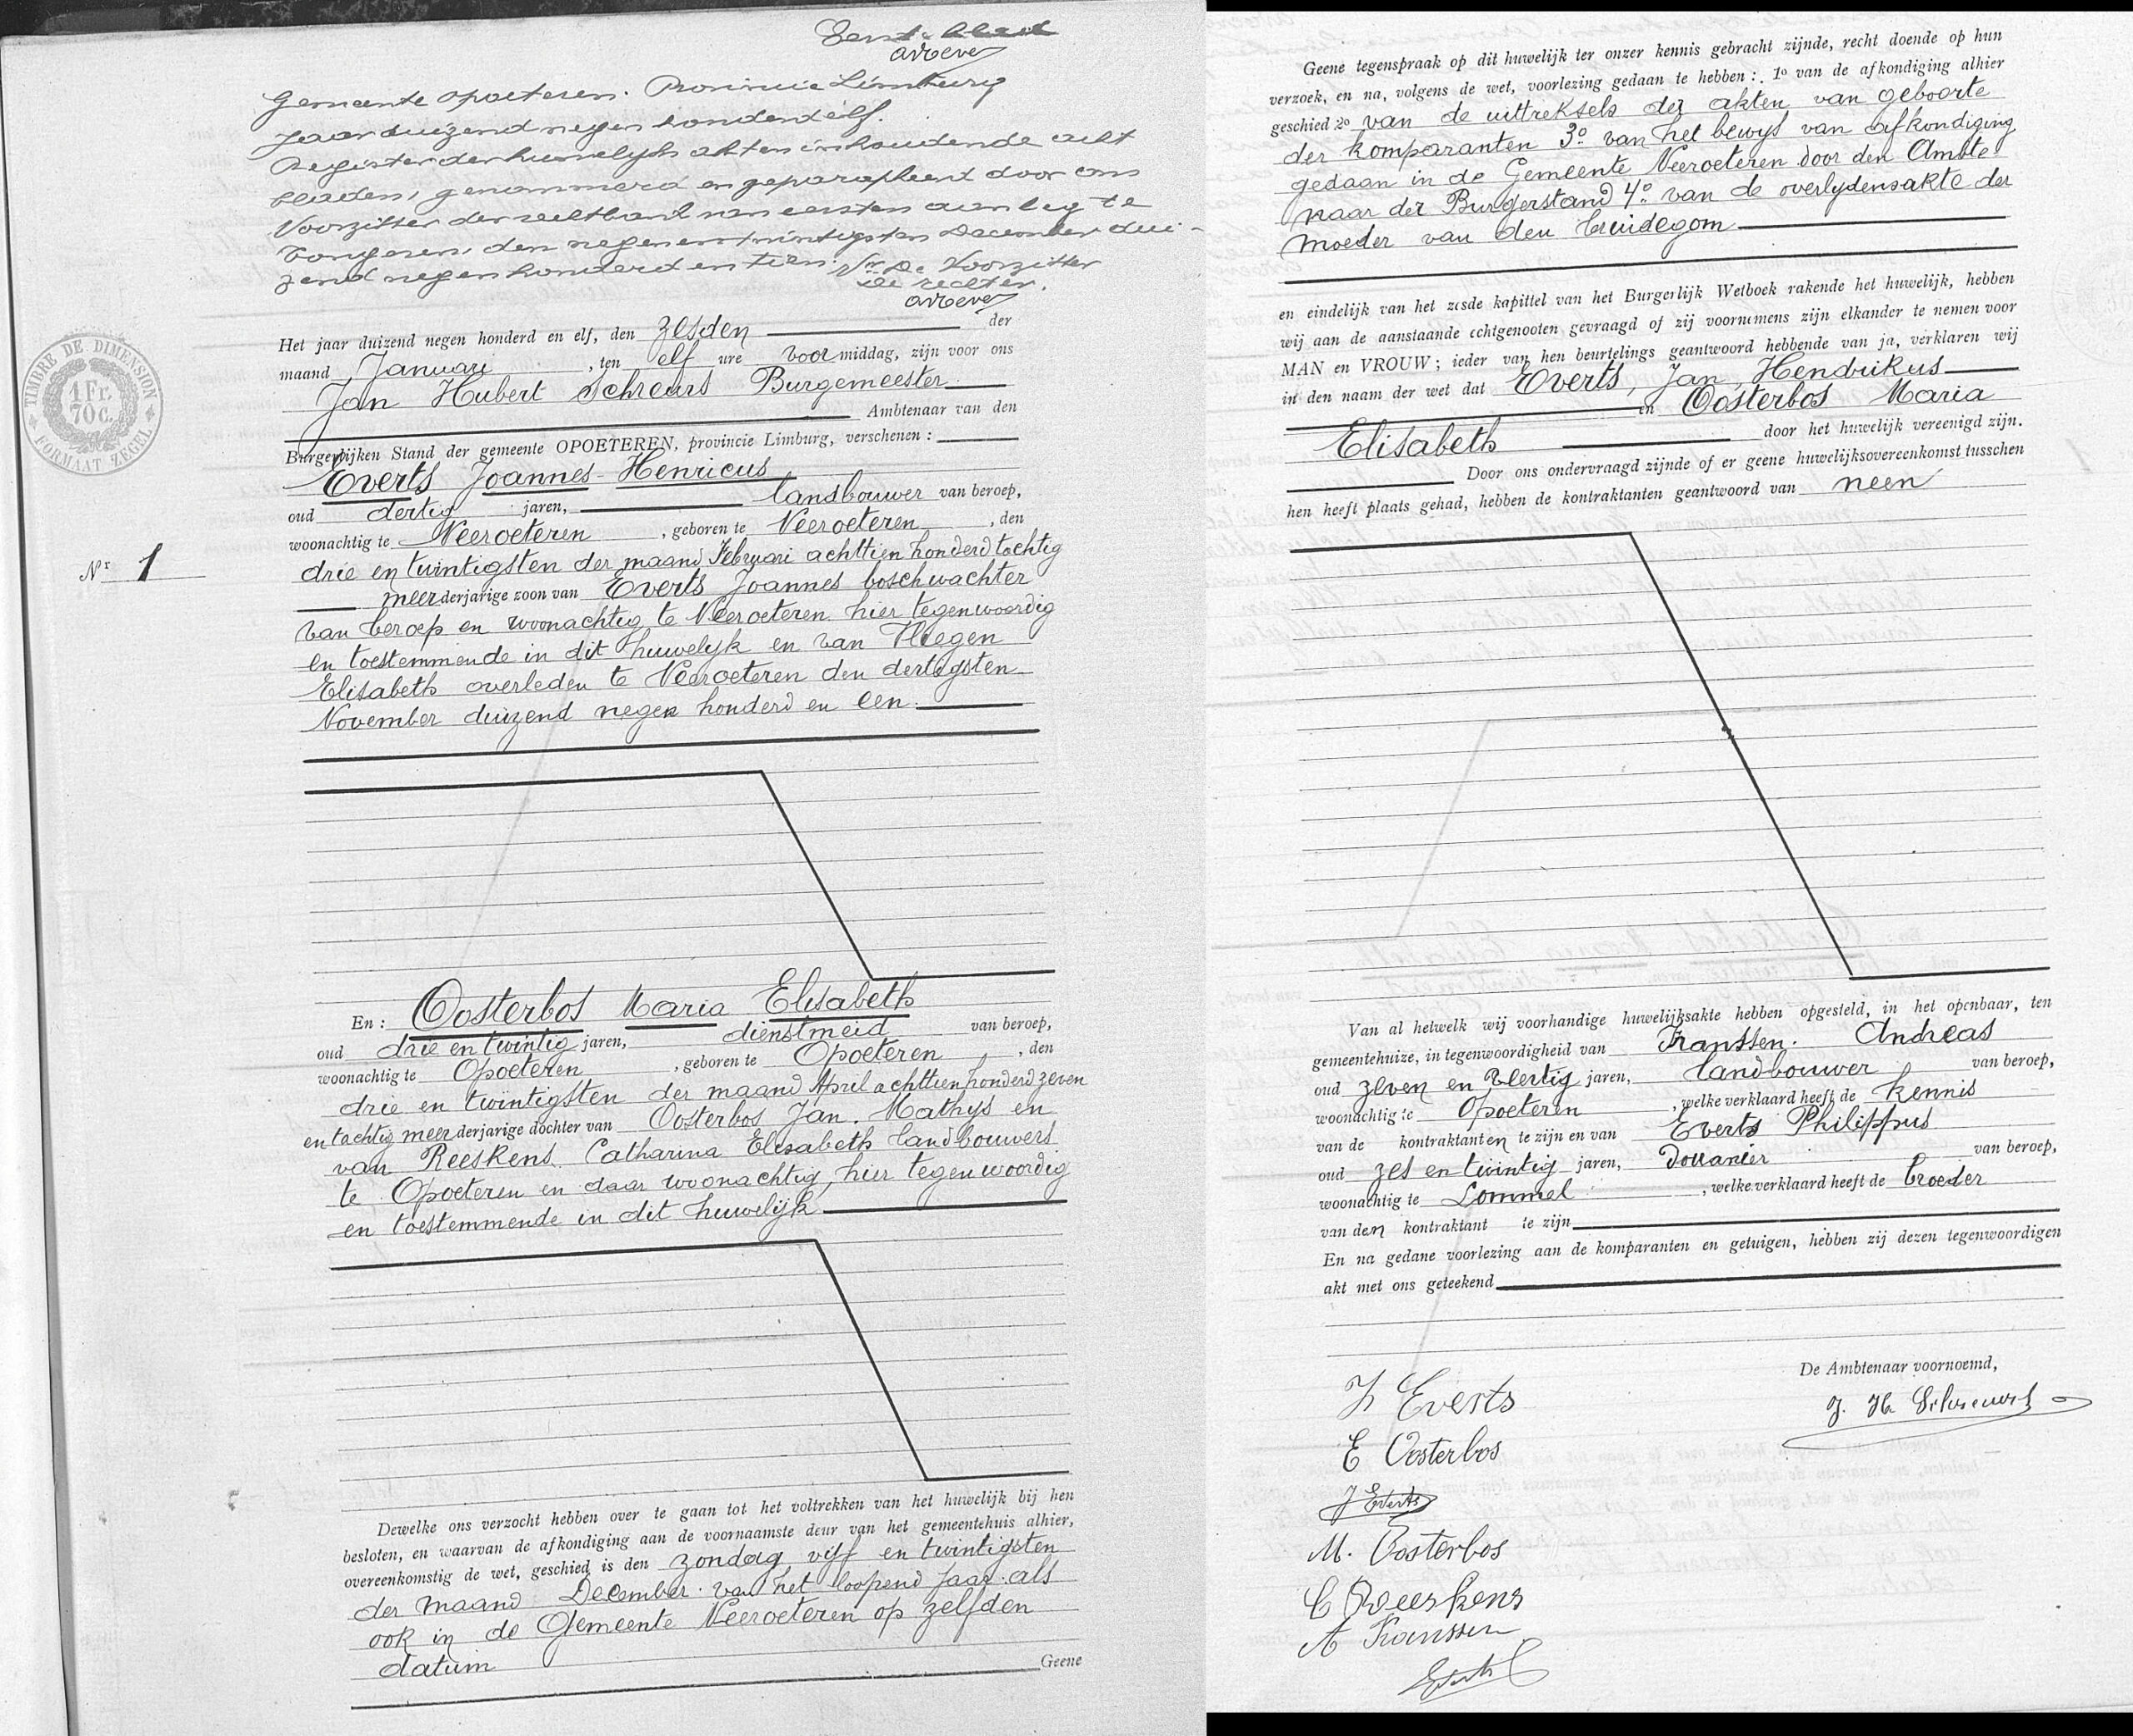 Eerste blad
Gemeente Opoeteren. Provincie Limburg
Jaar duizend negen honderd elf.
Register der huwelijks akten inhoudende acht
bladen, genommerd en geparapheerd door ons
Voorzitter der rechtbank van eersten aanleg te
Tongeren, den negenentwintigsten December dui-
zend negen honderd en tien. Vr De Voorzitter
De rechter.
TIMBRE DE DIMENSION
1 Fr.
70 c.
FORMAAT ZEGEL
Het jaar duizend negen honderd en elf, den zesden der
maand Januari, ten elf ure voormiddag, zijn voor ons
Jan Hubert Schreurs Burgemeester
Ambtenaar van den
Burgerlijken Stand der gemeente OPOETEREN, provincie Limburg, verschenen :
Everts Joannes-Henricus
oud dertig jaren, landbouwer van beroep,
woonachtig te Neeroeteren, geboren te Neeroeteren, den
Nr 1
drie en twintigsten der maand Februari achttien honderd tachtig
meerderjarige zoon van Everts Joannes boschwachter
van beroep en woonachtig te Neeroeteren hier tegenwoordig
en toestemmende in dit huwelyk en van Vliegen
Elisabeth overleden te Neeroeteren den dertigsten
November duizend negen honderd en een.
En : Oosterbos Maria Elisabeth
oud drie en twintig jaren, dienstmeid van beroep,
woonachtig te Opoeteren, geboren te Opoeteren, den
drie en twintigsten der maand April achttien honderd zeven
en tachtig meerderjarige dochter van Oosterbos Jan. Mathys en
van Reeskens Catharina Elisabeth landbouwers
te Opoeteren en daar woonachtig, hier tegenwoordig
en toestemmende in dit huwelijk
Dewelke ons verzocht hebben over te gaan tot het voltrekken van het huwelijk bij hen
besloten, en waarvan de afkondiging aan de voornaamste deur van het gemeentehuis alhier,
overeenkomstig de wet, geschied is den zondag vijf en twintigsten
der maand December van het loopend jaar als
ook in de Gemeente Neeroeteren op zelfden
datum
Geene
Geene tegenspraak op dit huwelijk ter onzer kennis gebracht zijnde, recht doende op hun
verzoek, en na, volgens de wet, voorlezing gedaan te hebben : 1o van de afkondiging alhier
geschied 2o van de uittreksels der akten van geboorte
der komparanten 3o van het bewys van afkondiging
gedaan in de Gemeente Neeroeteren door den Ambte-
naar der Burgerstand 4o van de overlydensakte der
moeder van den bruidegom
en eindelijk van het zesde kapittel van het Burgerlijk Wetboek rakende het huwelijk, hebben
wij aan de aanstaande echtgenooten gevraagd of zij voornemens zijn elkander te nemen voor
MAN en VROUW ; ieder van hen beurtelings geantwoord hebbende van ja, verklaren wij
in den naam der wet dat Everts, Jan, Hendrikus
en Oosterbos Maria
Elisabeth door het huwelijk vereenigd zijn.
Door ons ondervraagd zijnde of er geene huwelijksovereenkomst tusschen
hen heeft plaats gehad, hebben de kontraktanten geantwoord van neen
Van al hetwelk wij voorhandige huwelijksakte hebben opgesteld, in het openbaar, ten
gemeentehuize, in tegenwoordigheid van Franssen. Andreas
oud zeven en veertig jaren, landbouwer van beroep,
woonachtig te Opoeteren, welke verklaard heeft de kennis
van de kontraktanten te zijn en van Everts Philippus
oud zes en twintig jaren, douanier van beroep,
woonachtig te Lommel, welke verklaard heeft de broeder
van den kontraktant te zijn
En na gedane voorlezing aan de komparanten en getuigen, hebben zij dezen tegenwoordigen
akt met ons geteekend
De Ambtenaar voornoemd,
J. H. Schreurs
H Everts
E Oosterbos
J Everts
M. Oosterbos
C Reeskens
A Franssen